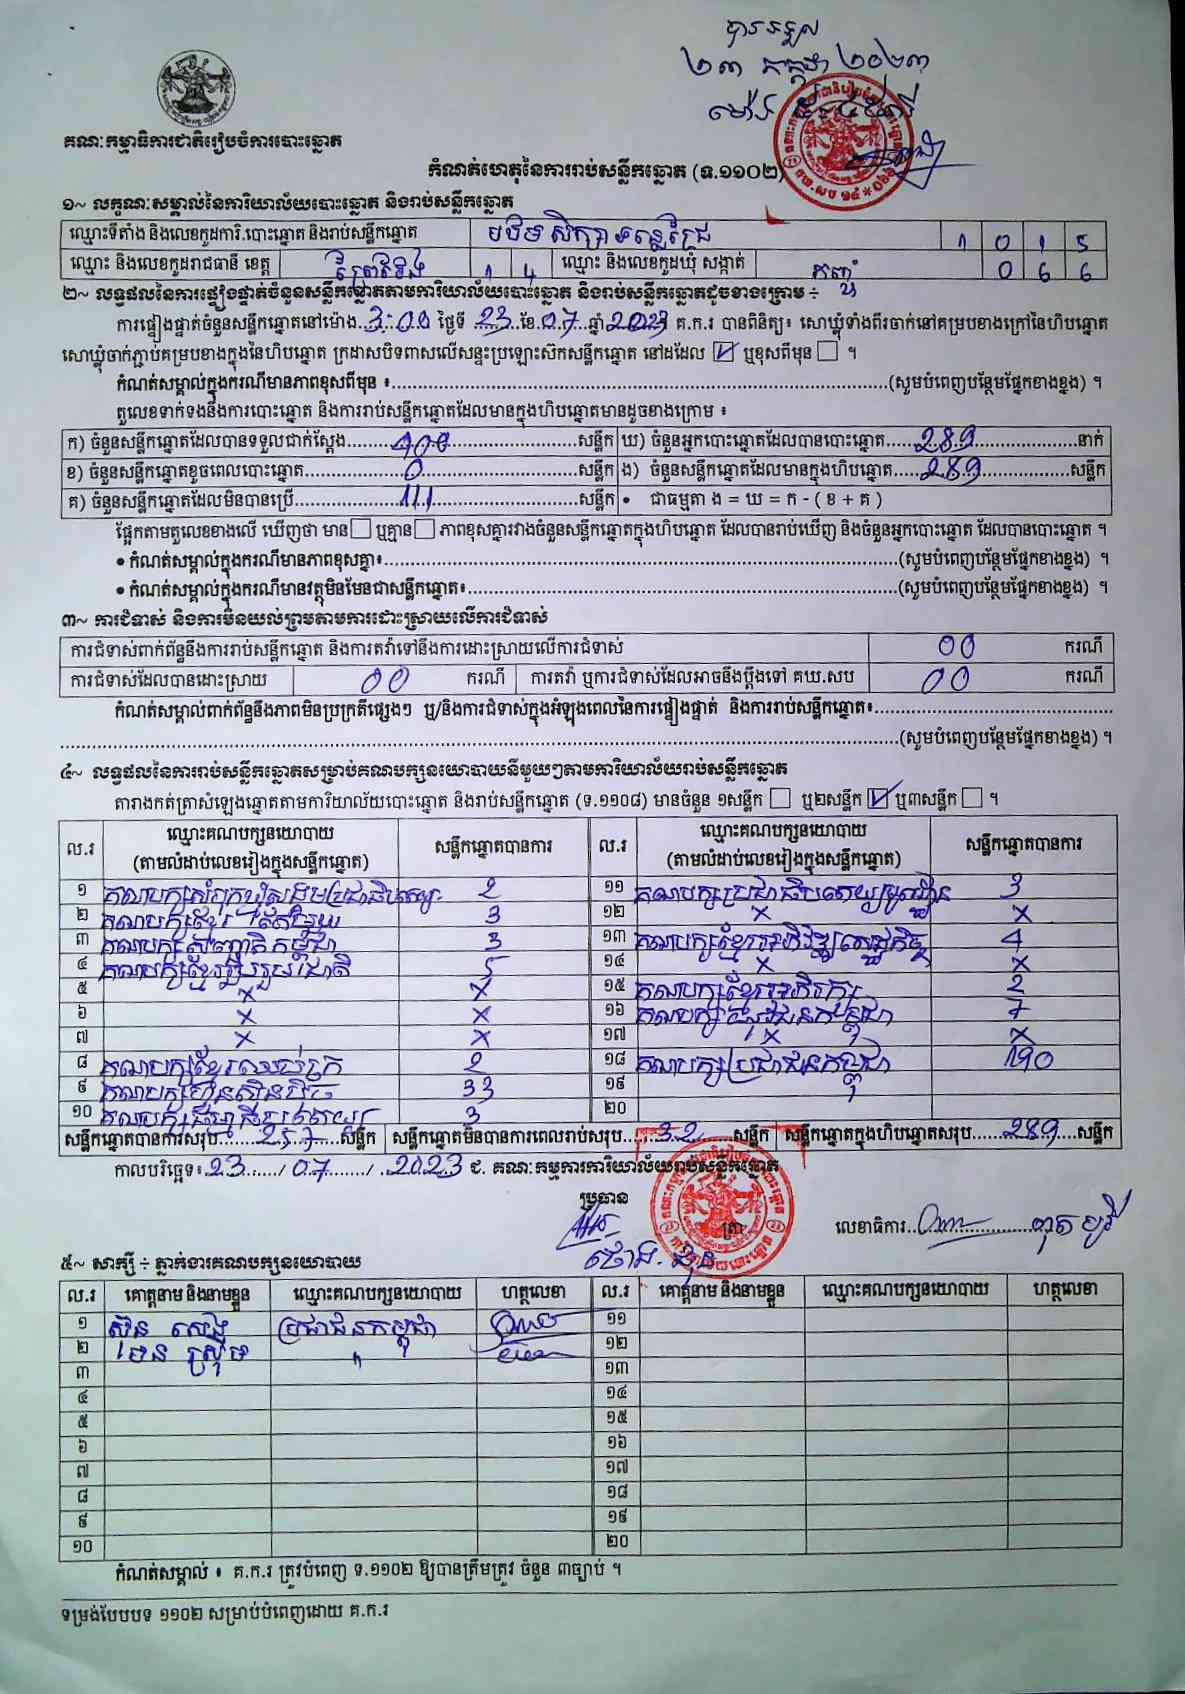 បានទទួល
២៣ កក្កដា ២០២៣
ម៉ោង
គណៈកម្មាធិការជាតិរៀបចំការបោះឆ្នោត
កំណត់ហេតុនៃការរាប់សន្លឹកឆ្នោត (ទ.១១០២)
១~ លក្ខណៈសម្គាល់នៃការិយាល័យបោះឆ្នោត និងរាប់សន្លឹកឆ្នោត
ឈ្មោះទីតាំង និងលេខកូដការិ.បោះឆ្នោត និងរាប់សន្លឹកឆ្នោត បឋមសិក្សា 1 0 1 5
ឈ្មោះ និងលេខកូដរាជធានី ខេត្ត ព្រៃវែង 1 4 ឈ្មោះ និងលេខកូដឃុំ សង្កាត់ កញ្ជំ 0 6 6
២~ លទ្ធផលនៃការផ្ទៀងផ្ទាត់ចំនួនសន្លឹកឆ្នោតតាមការិយាល័យបោះឆ្នោត និងរាប់សន្លឹកឆ្នោតដូចខាងក្រោម ÷
ការផ្ទៀងផ្ទាត់ចំនួនសន្លឹកឆ្នោតនៅម៉ោង 3:00 ថ្ងៃទី 23 ខែ 07 ឆ្នាំ 2023 គ.ក.រ បានពិនិត្យ៖ សោឃ្លុំទាំងពីរចាក់នៅគម្របខាងក្រៅនៃហិបឆ្នោត
សោឃ្លុំចាក់ភ្ជាប់គម្របខាងក្នុងនៃហិបឆ្នោត ក្រដាសបិទពាសលើសន្ទះប្រឡោះស៊កសន្លឹកឆ្នោត នៅដដែល ☑ ឬខុសពីមុន ☐ ។
កំណត់សម្គាល់ក្នុងករណីមានភាពខុសពីមុន ៖ (សូមបំពេញបន្ថែមផ្នែកខាងខ្នង) ។
តួលេខទាក់ទងនឹងការបោះឆ្នោត និងការរាប់សន្លឹកឆ្នោតដែលមានក្នុងហិបឆ្នោតមានដូចខាងក្រោម ៖
ក) ចំនួនសន្លឹកឆ្នោតដែលបានទទួលជាក់ស្តែង 400 សន្លឹក ឃ) ចំនួនអ្នកបោះឆ្នោតដែលបានបោះឆ្នោត 289 នាក់
ខ) ចំនួនសន្លឹកឆ្នោតខូចពេលបោះឆ្នោត 0 សន្លឹក ង) ចំនួនសន្លឹកឆ្នោតដែលមានក្នុងហិបឆ្នោត 289 សន្លឹក
គ) ចំនួនសន្លឹកឆ្នោតដែលមិនបានប្រើ 111 សន្លឹក • ជាធម្មតា ង = ឃ = ក - ( ខ + គ )
ផ្អែកតាមតួលេខខាងលើ ឃើញថា មាន ☐ ឬគ្មាន ☐ ភាពខុសគ្នារវាងចំនួនសន្លឹកឆ្នោតក្នុងហិបឆ្នោត ដែលបានរាប់ឃើញ និងចំនួនអ្នកបោះឆ្នោត ដែលបានបោះឆ្នោត ។
• កំណត់សម្គាល់ក្នុងករណីមានភាពខុសគ្នា៖ (សូមបំពេញបន្ថែមផ្នែកខាងខ្នង) ។
• កំណត់សម្គាល់ក្នុងករណីមានវត្ថុមិនមែនជាសន្លឹកឆ្នោត៖ (សូមបំពេញបន្ថែមផ្នែកខាងខ្នង) ។
៣~ ការជំទាស់ និងការមិនយល់ព្រមតាមការដោះស្រាយលើការជំទាស់
ការជំទាស់ពាក់ព័ន្ធនឹងការរាប់សន្លឹកឆ្នោត និងការតវ៉ាទៅនឹងការដោះស្រាយលើការជំទាស់ 00 ករណី
ការជំទាស់ដែលបានដោះស្រាយ 00 ករណី ការតវ៉ា ឬការជំទាស់ដែលអាចនឹងប្តឹងទៅ គឃ.សប 00 ករណី
កំណត់សម្គាល់ពាក់ព័ន្ធនឹងភាពមិនប្រក្រតីផ្សេងៗ ឬ/និងការជំទាស់ក្នុងអំឡុងពេលនៃការផ្ទៀងផ្ទាត់ និងការរាប់សន្លឹកឆ្នោត៖
(សូមបំពេញបន្ថែមផ្នែកខាងខ្នង) ។
៤~ លទ្ធផលនៃការរាប់សន្លឹកឆ្នោតសម្រាប់គណបក្សនយោបាយនីមួយៗតាមការិយាល័យរាប់សន្លឹកឆ្នោត
តារាងកត់ត្រាសំឡេងឆ្នោតតាមការិយាល័យបោះឆ្នោត និងរាប់សន្លឹកឆ្នោត (ទ.១១០៨) មានចំនួន ១សន្លឹក ☐ ឬ២សន្លឹក ☑ ឬ៣សន្លឹក ☐ ។
ល.រ ឈ្មោះគណបក្សនយោបាយ (តាមលំដាប់លេខរៀងក្នុងសន្លឹកឆ្នោត) សន្លឹកឆ្នោតបានការ ល.រ ឈ្មោះគណបក្សនយោបាយ (តាមលំដាប់លេខរៀងក្នុងសន្លឹកឆ្នោត) សន្លឹកឆ្នោតបានការ
១ គណបក្សសំបុកឃ្មុំសង្គមប្រជាធិបតេយ្យ 2 ១១ គណបក្សប្រជាធិបតេយ្យមូលដ្ឋាន 3
២ គណបក្សខ្មែរ 3 ១២ × ×
៣ គណបក្ស កម្ពុជា 3 ១៣ គណបក្សខ្មែរអភិវឌ្ឍន៍សេដ្ឋកិច្ច 4
៤ គណបក្សខ្មែររួបរួមជាតិ 5 ១៤ × ×
៥ × × ១៥ គណបក្សខ្មែរអភិរក្ស 2
៦ × × ១៦ គណបក្ស កម្ពុជា 7
៧ × × ១៧ × ×
៨ គណបក្សខ្មែរឈប់ក្រ 2 ១៨ គណបក្សប្រជាជនកម្ពុជា 190
៩ គណបក្សហ៊្វុនស៊ិនប៉ិច 33 ១៩
១០ គណបក្ស 3 ២០
សន្លឹកឆ្នោតបានការសរុប 257 សន្លឹក សន្លឹកឆ្នោតមិនបានការពេលរាប់សរុប 32 សន្លឹក សន្លឹកឆ្នោតក្នុងហិបឆ្នោតសរុប 289 សន្លឹក
កាលបរិច្ឆេទ៖ 23 / 07 / 2023 ជ. គណៈកម្មការការិយាល័យរាប់សន្លឹកឆ្នោត
ប្រធាន ត្រា លេខាធិការ
៥~ សាក្សី ÷ ភ្នាក់ងារគណបក្សនយោបាយ
ល.រ គោត្តនាម និងនាមខ្លួន ឈ្មោះគណបក្សនយោបាយ ហត្ថលេខា ល.រ គោត្តនាម និងនាមខ្លួន ឈ្មោះគណបក្សនយោបាយ ហត្ថលេខា
១ ប្រជាជនកម្ពុជា ១១
២ " ១២
៣ ១៣
៤ ១៤
៥ ១៥
៦ ១៦
៧ ១៧
៨ ១៨
៩ ១៩
១០ ២០
កំណត់សម្គាល់ ៖ គ.ក.រ ត្រូវបំពេញ ទ.១១០២ ឱ្យបានត្រឹមត្រូវ ចំនួន ៣ច្បាប់ ។
ទម្រង់បែបបទ ១១០២ សម្រាប់បំពេញដោយ គ.ក.រ